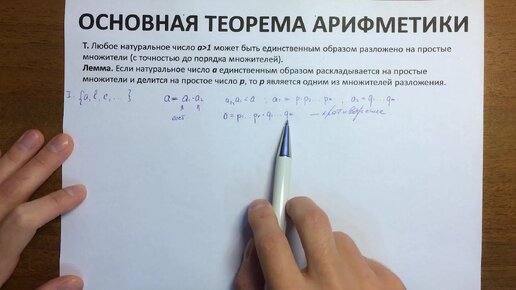 ОСНОВНАЯ ТЕОРЕМА АРИФМЕТИКИ
Т. Любое натуральное число a>1 может быть единственным образом разложено на простые
множители (с точностью до порядка множителей).
Лемма. Если натуральное число a единственным образом раскладывается на простые
множители и делится на простое число p, то p является одним из множителей разложения.
I. {a, b, c, ...} a = a₁·a₂ a₂, a₁ < a , a₁ = p₁p₂...pₙ , a₂ = q₁...qₘ
сост. a = p₁...pₙ·q₁...qₘ — противоречие